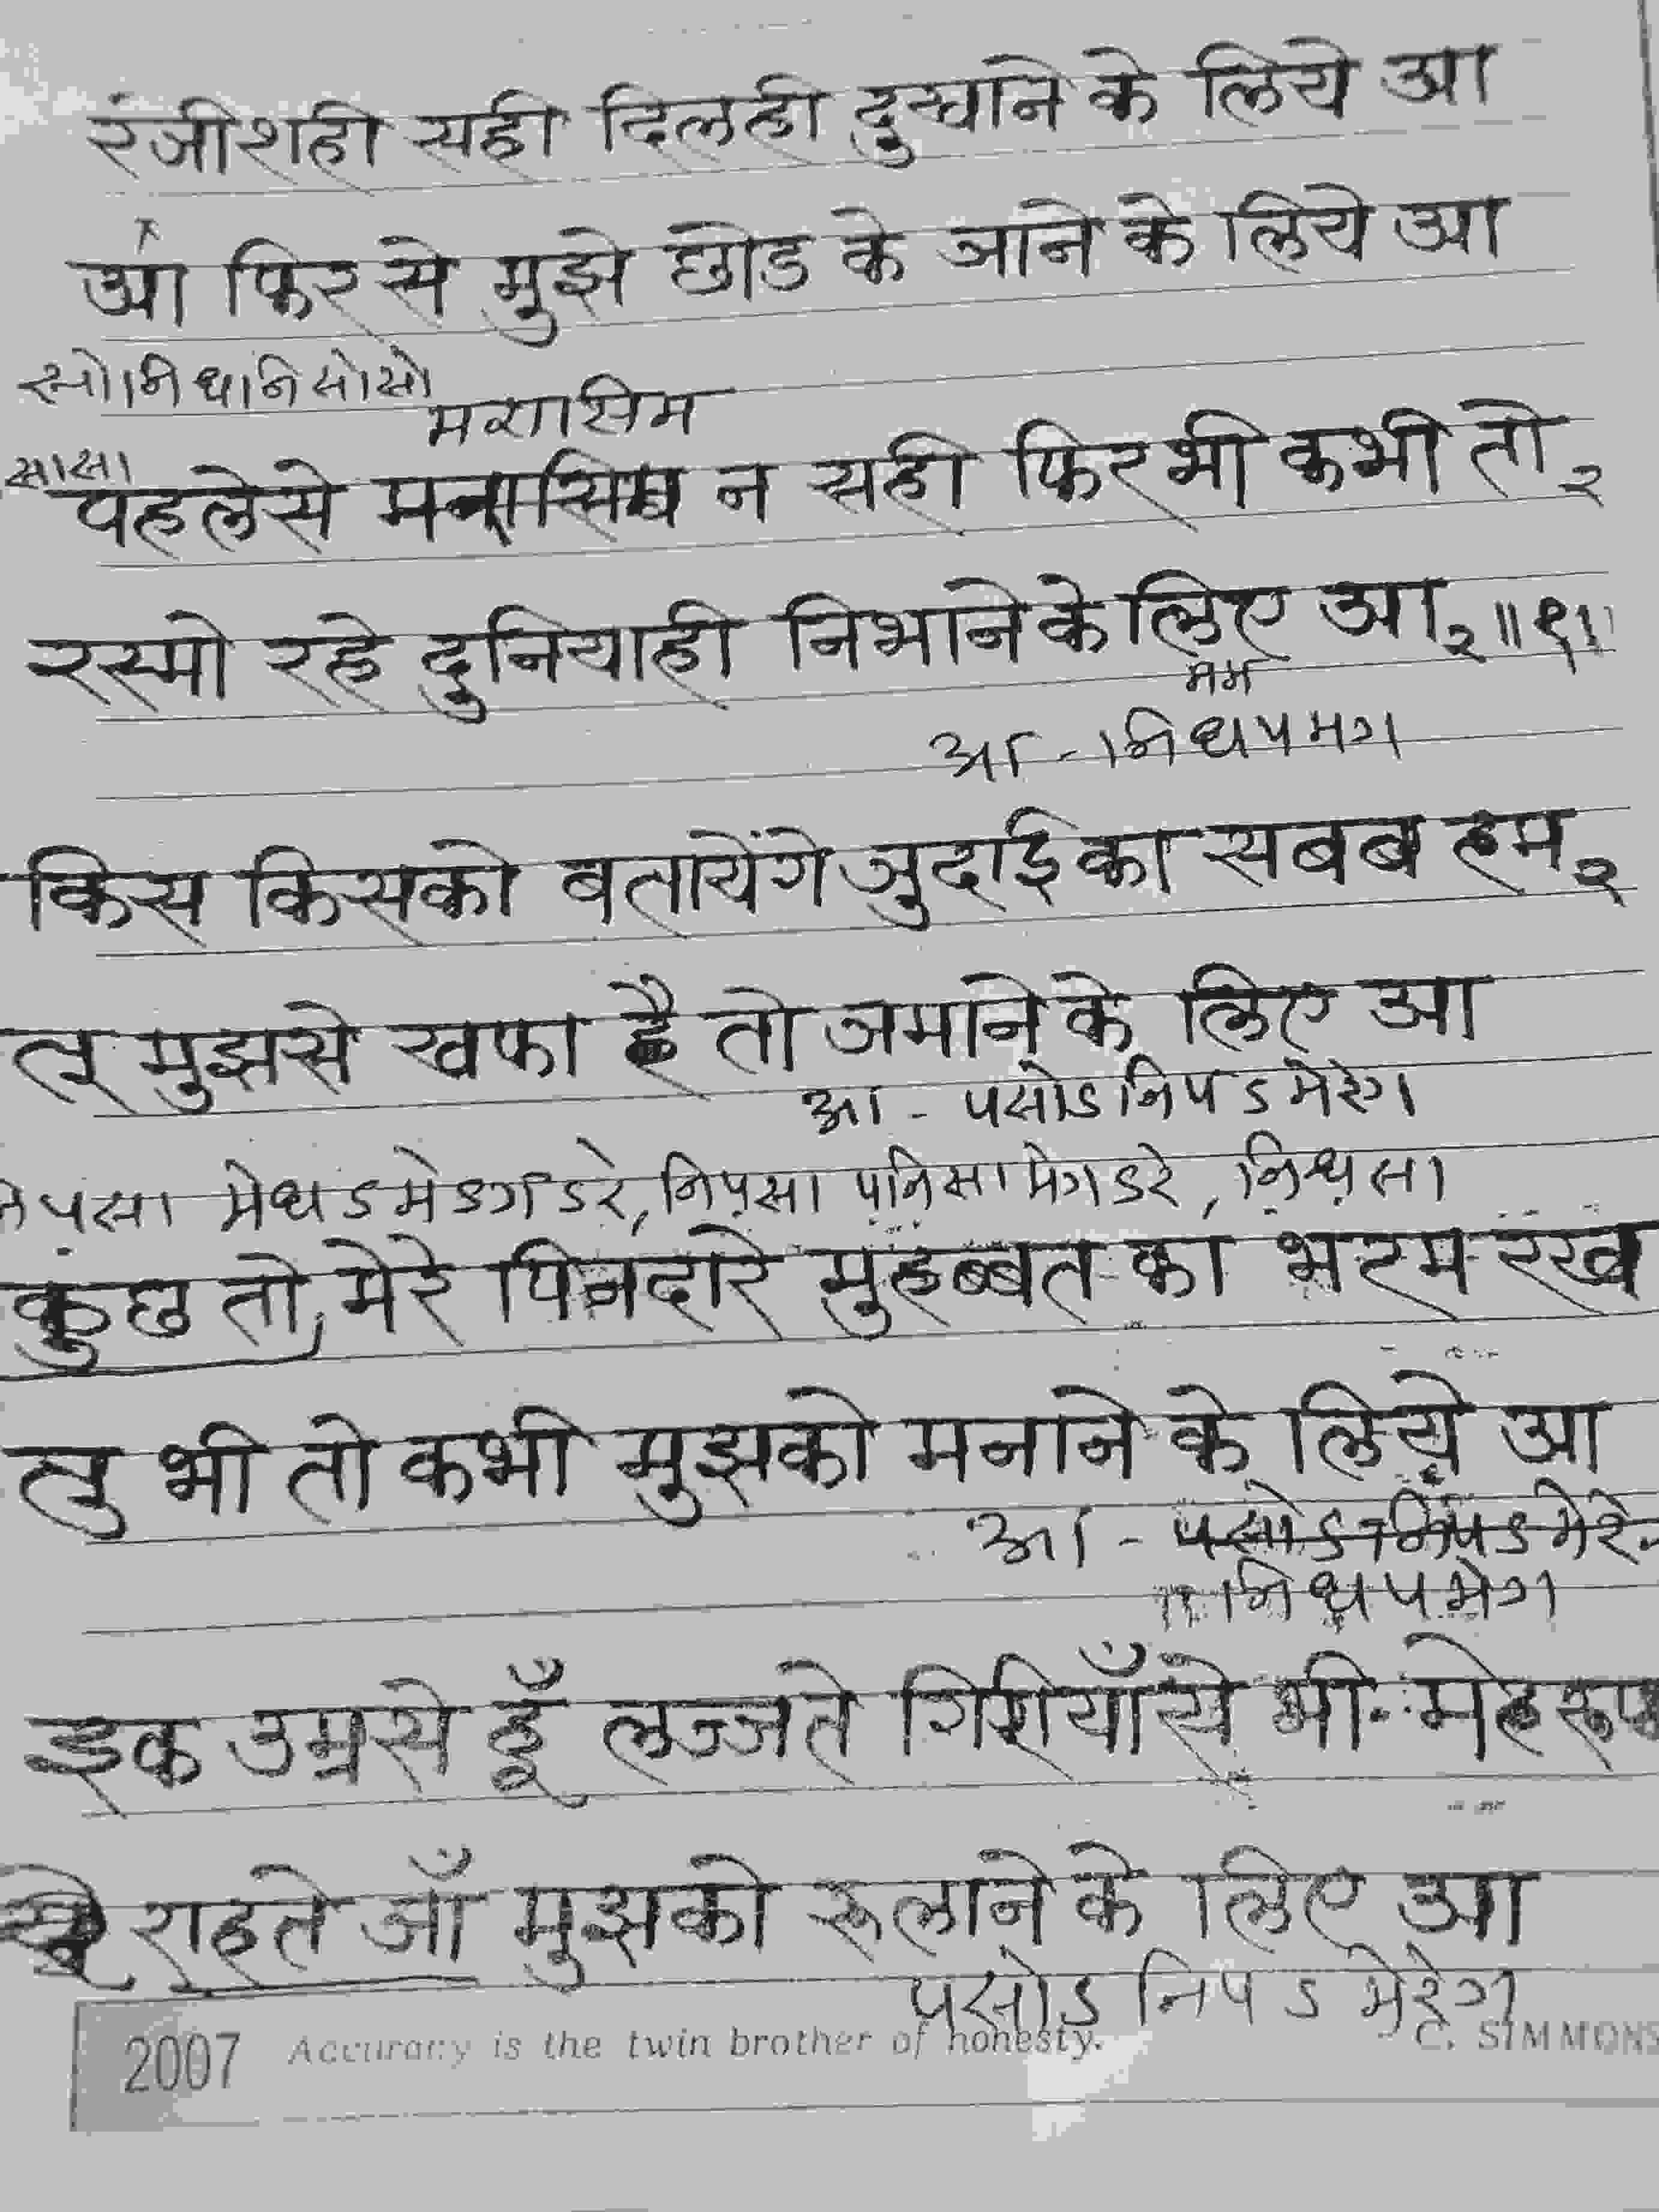 रंजीशही सही दिलही दुखाने के लिये आ
आ फिर से मुझे छोड के जाने के लिये आ
सो।नि धानि सोसो
मरासिम
सासा
पहलेसे न सही फिर भी कभी तो २
रस्मो रहे दुनियाही निभाने के लिए आ २ ॥१॥
मम
आ - निधपमग
किस किसको बतायेंगे जुदाई का सबब हम २
तू मुझसे खफा है तो जमाने के लिए आ
आ - पसोऽनिपऽमेरेग
पसा मेधऽमेऽगऽरे, निपसा पनिसा मेगऽरे, निधसा
कुछ तो, मेरे पिनदारे मुहब्बत का भरम रख
तु भी तो कभी मुझको मनाने के लिये आ
आ - पसोऽनिपऽमेरे
निधपमेग
इक उम्रसे हूँ लज्जते गिरियाँसे भी मेहरूम
राहते जाँ मुझको रूलाने के लिए आ
पसोऽनिपऽमेरेग
2007 Accuracy is the twin brother of honesty. C. SIMMONS